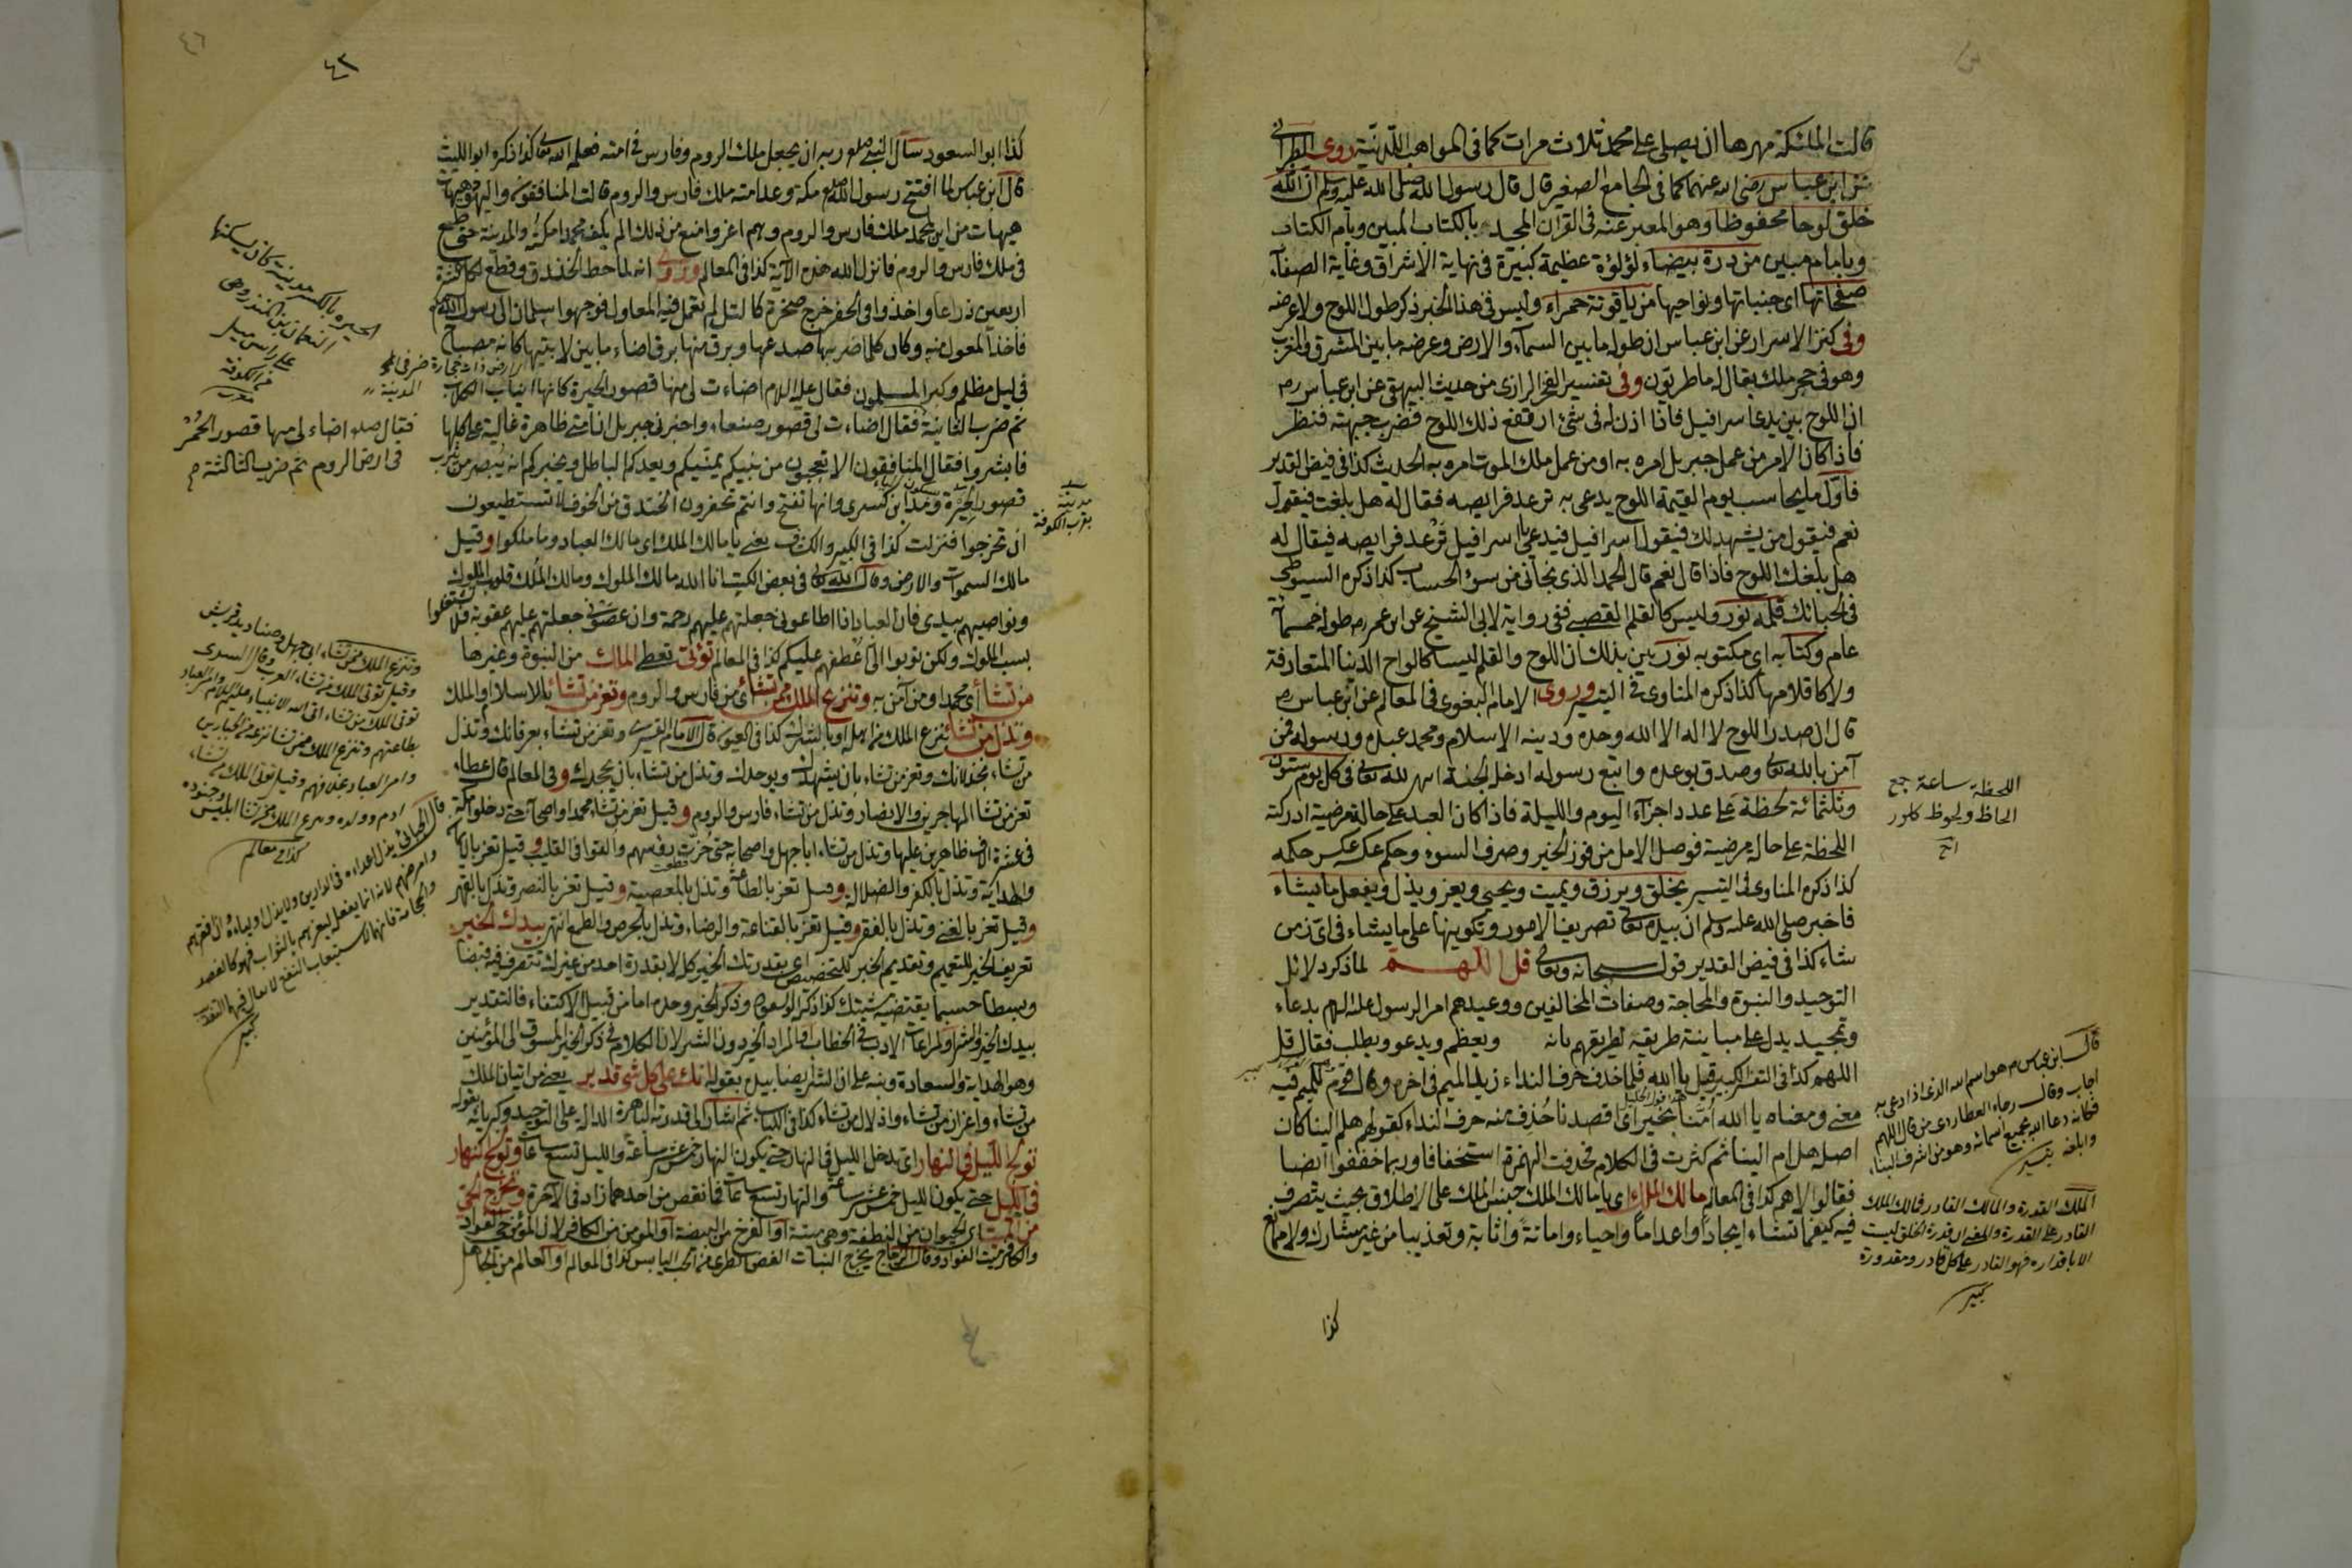 قالت الملئكة مهرها ان يصلى على محمد ثلاث مرات كما فى المواهب اللدنية روى الطبرانى
عن ابن عباس رضى الله عنهما كما فى الجامع الصغير قال قال رسول الله صلى الله عليه وسلم ان الله
خلق لوحا محفوظا وهو المعبر عنه فى القرآن المجيد بالكتاب المبين وبام الكتاب
وبامام مبين من درة بيضاء لؤلؤة عظيمة كبيرة فى نهاية الاشراق وغاية الصفاء
صفحاتها اى جنباتها ونواحيها من ياقوتة حمراء وليس فى هذا الخبر ذكر طول اللوح ولا عرضه
وفى كنز الاسرار عن ابن عباس ان طوله ما بين السماء والارض وعرضه ما بين المشرق والمغرب
وهو فى حجر ملك يقال له ماطريون وفى تفسير الفخر الرازى من حديث البيهقى عن ابن عباس رضـ
ان اللوح بين يدى اسرافيل فاذا اذن له فى شئ ارتفع ذلك اللوح فضرب جبهته فنظر
فاذا كان الامر من عمل جبريل امره به او من عمل ملك الموت امره به الحديث كذا فى فيض القدير
فاول ما يحاسب يوم القيمة اللوح يدعى به ترعد فرايصه فقال له هل بلغت فيقول
نعم فيقول من يشهد لك فيقول اسرافيل فيدعى اسرافيل ترعد فرايصه فيقال له
هل بلغك اللوح فاذا قال نعم قال الحمد الذى نجانى من سوء الحساب كذا ذكره السيوطى
فى الحبائك قلمه نور وليس كالقلم القصبى ففى رواية لابى الشيخ عن ابن عمر رضـ طوله خمسمائة
عام وكتابه اى مكتوبه نور بين بذلك ان اللوح والقلم ليسا كالواح الدنيا المتعارفة
ولا كاقلامها كذا ذكره المناوى فى التيسير وروى الامام البغوى فى المعالم عن ابن عباس رضـ
قال ان صدر اللوح لا اله الا الله وحده ودينه الاسلام ومحمد عبده ورسوله فمن
آمن بالله تعالى وصدق بوعده واتبع رسوله ادخل الجنة انتهى لله تعالى فى كل يوم ستون
وثلثمائة لحظة على عدد اجزاء اليوم والليلة فاذا كان العبد على حالة مرضية ادركته
اللحظة على حالة مرضية فوصل الامل من فوز الخير وصرف السوء وحكم عكسه عكس حكمه
كذا ذكره المناوى فى التيسير يخلق ويرزق ويميت ويحيى ويعز ويذل ويفعل ما يشاء
فاخبر صلى الله عليه وسلم ان بيده تعالى تصريف الامور وتكوينها على ما يشاء فى اى زمن
شاء كذا فى فيض القدير قوله سبحانه وتعالى قل اللهم لما ذكر دلائل
التوحيد والنبوة والمحاجة وصفات المخالفين ووعيدهم امر الرسول عليه السلام بدعاء
وتمجيد يدل على مباينة طريقه لطريقهم بانه ويعظم ويدعو ويطلب فقال قل
اللهم كذا فى التفسير الكبير قيل يا الله فلما حذف حرف النداء زيد الميم فى آخره وقال قوم للميم فيه
معنى ومعناه يا الله امنا بخير اى قصدنا حذف منه حرف النداء كقولهم هلم الينا كان
اصله هل ام الينا ثم كثرت فى الكلام فحذفت الهمزة استخفافا وربما خففوا ايضا
فقالوا لاهم كذا فى المعالم مالك الملك اى يا مالك الملك جنس الملك على الاطلاق بحيث يتصرف
فيه كيفما تشاء ايجادا واعداما واحياء واماتة واثابة وتعذيبا من غير مشارك ولا ممانع
كذا
اللحظة ساعة جمع
الحاظ ولحوظ كلور
قال ابن عباس رضـ هو اسم الله الذى اذا دعى به
اجاب وقال رجاء العطاردى من قال اللهم
فكانه دعا الله بجميع اسمائه وهو من اشرف الثناء
وابلغه تيسير
الملك القدرة والمالك القادر فمالك الملك
القادر على القدرة والمعنى ان قدرة الخلق ليست
الا باقداره فهو القادر على كل قادر ومقدوره
كبير
٤٦
٤٣
كذا ابو السعود سأل النبى صلعم ربه ان يجعل ملك الروم وفارس فى امته فعلمه الله تعالى كذا ذكره ابو الليث
قال ابن عباس لما افتتح رسول الله صلعم مكة وعد امته ملك فارس والروم قالت المنافقون واليهود هيهات
هيهات من اين لمحمد ملك فارس والروم وهم اعز وامنع من ذلك الم يكف محمدا مكة والمدينة حتى طمع
فى ملك فارس والروم فانزل الله هذه الآية كذا فى المعالم وروى انه لما خط الخندق وقطع لكل عشرة
اربعين ذراعا واخذوا فى الحفر خرج صخرة كالتل لم تعمل فيه المعاول فوجهوا سلمان الى رسول الله صلعم
فاخذ المعول منه وكان كلما ضربها صدعها وبرق منها برق اضاء ما بين لابتيها كانه مصباح
فى ليل مظلم وكبر المسلمون فقال عليه السلام اضاءت لى منها قصور الحيرة كانها انياب الكلاب
ثم ضرب الثانية فقال اضاءت لى قصور صنعاء واخبرنى جبريل ان امتى ظاهرة غالبة على كلها
فابشروا فقال المنافقون الا تعجبون من نبيكم يمنيكم ويعدكم الباطل ويخبركم انه يبصر من يثرب
قصور الحيرة ومداين كسرى وانها تفتح وانتم تحفرون الخندق من الخوف لا تستطيعون
ان تخرجوا فنزلت كذا فى الكبير والكشاف يعنى يا مالك الملك اى مالك العباد وما ملكوا وقيل
مالك السموات والارض وقال الله تعالى فى بعض الكتب انا الله مالك الملوك ومالك الملك قلوب الملوك
ونواصيهم بيدى فان العباد اذا اطاعونى جعلتهم عليهم رحمة وان عصونى جعلتهم عليهم عقوبة فلا تشتغلوا
بسب الملوك ولكن توبوا الى اعطفهم عليكم كذا فى المعالم تؤتى تعطى الملك من النبوة وغيرها
من تشاء اى محمدا ومن آمن به وتنزع الملك ممن تشاء اى من فارس والروم وتعز من تشاء بالاسلام والملك
وتذل من تشاء بنزع الملك من اهله او بالشرك كذا فى العيون قال الامام القشيرى وتعز من تشاء بعرفانك وتذل
من تشاء بخذلانك وتعز من تشاء بان يشهدك ويوحدك وتذل من تشاء بان يجحدك وفى المعالم قال عطاء
تعز من تشاء المهاجرين والانصار وتذل من تشاء فارس والروم وقيل تعز من تشاء محمدا واصحابه حتى دخلوا مكة
فى عشرة آلاف ظاهرين عليها وتذل من تشاء ابا جهل واصحابه حتى حزت رؤسهم والقوا فى القليب وقيل تعز بالايمان
والهداية وتذل بالكفر والضلالة وقيل تعز بالطاعة وتذل بالمعصية وقيل تعز بالنصر وتذل بالقهر
وقيل تعز بالغنى وتذل بالفقر وقيل تعز بالقناعة والرضاء وتذل بالحرص والطمع انتهى بيدك الخير
تعريف الخير للتعميم وتقديم الخبر للتخصيص اى بقدرتك الخير كله لا بقدرة احد من غيرك تتصرف فيه قبضا
وبسطا حسبما يقتضيه مشيتك كذا ذكره ابو السعود وذكر الخير وحده اما من قبيل الاكتفاء فالتقدير
بيدك الخير والشر او لمراعات الادب فى الخطاب والمراد الخير دون الشر لان الكلام فى ذكر الخير المسوق الى المؤمنين
وهو الهداية والسعادة ونبه على ان الشر ايضا بيده بقوله انك على كل شئ قدير يعنى من ايتان الملك
من تشاء واعزاز من تشاء واذلال من تشاء كذا فى الكتاب ثم اشار الى قدرته الباهرة الدالة على التوحيد وكبريائه بقوله
تولج الليل فى النهار اى يدخل الليل فى النهار حتى يكون النهار خمس عشرة ساعة والليل تسع ساعات وتولج النهار
فى الليل حتى يكون الليل خمس عشرة ساعة والنهار تسع ساعات فما نقص من احدهما زاد فى الآخرة وتخرج الحى
من الميت اى الحيوان من النطفة وهى ميتة او الفرخ من البيضة او المؤمن من الكافر لان المؤمن حى الفواد
والكافر ميت الفواد وقال الزجاج يخرج النبات الغض الطرى من الحب اليابس كذا فى المعالم او العالم من الجاهل
الحيره بالكسر مدينة كان يسكنها
النعمان بن المنذر وهى
على راس ميل
من الكوفة
فقال صلعم اضاء لى منها قصور الحمر
فى ارض الروم ثم ضرب الثالثة
مدينة
بقرب الكوفة
وتنزع الملك ممن تشاء ابى جهل وصناديد قريش
وقيل تؤتى الملك من تشاء العرب وقال السدى
تؤتى الملك من تشاء اتى الله الانبياء عليهم السلام وامر العباد
بطاعتهم وتنزع الملك ممن تشاء نزعه من الجبارين
وامر العباد بخلافهم وقيل تؤتى الملك من تشاء
ادم وولده وتنزع الملك ممن تشاء ابليس وجنوده
كذا فى معالم
كبير